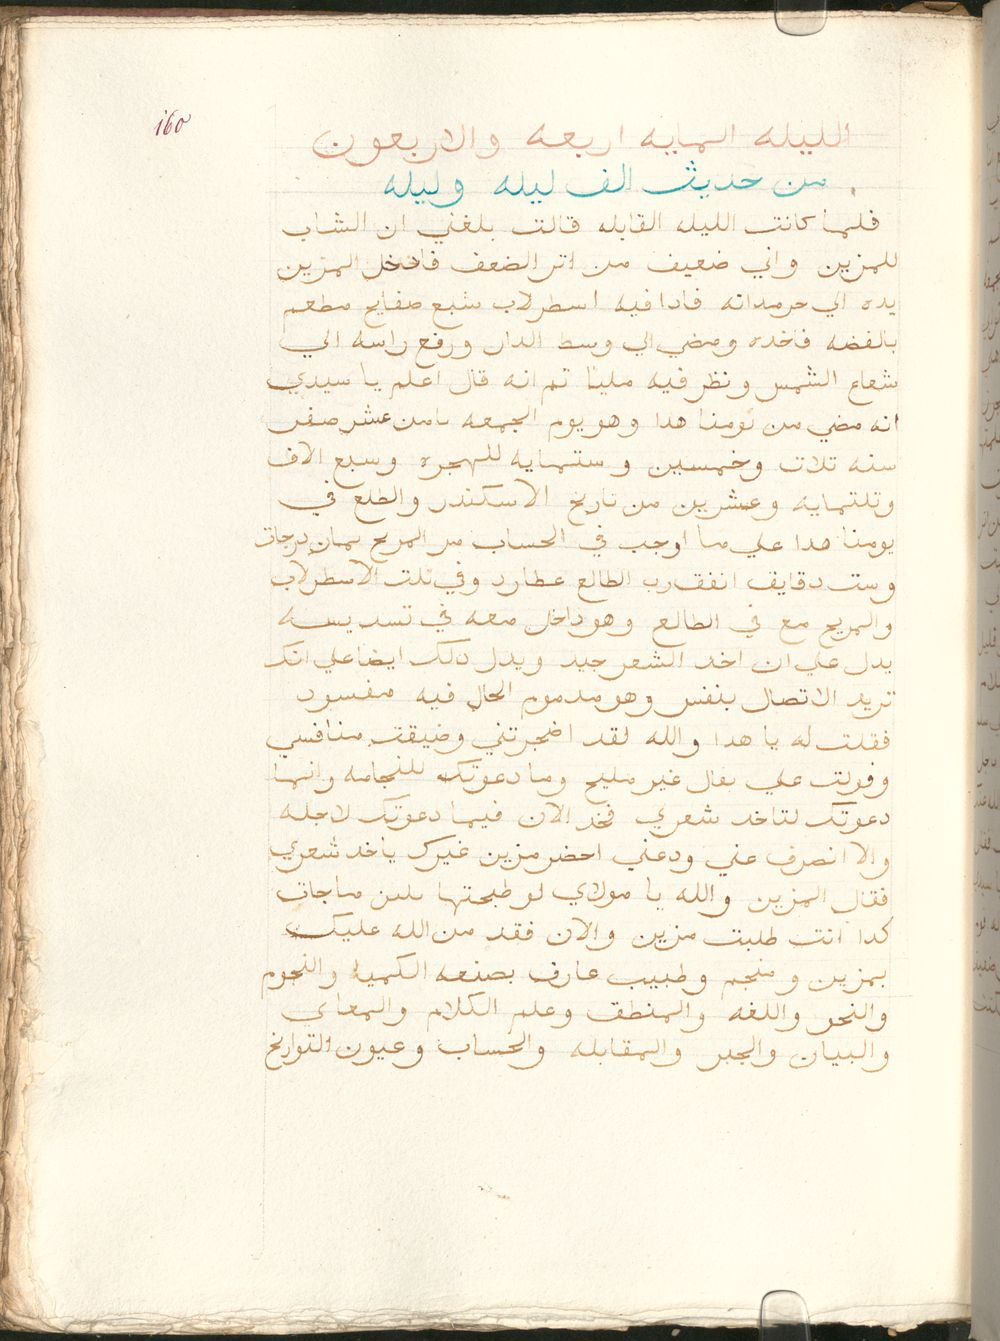 160
الليله المايه اربعه والاربعون
من حديث الف ليله وليله
فلما كانت الليله القابله قالت بلغني ان الشاب
للمزين واني ضعيف من اتر الضعف فادخل المزين
يده الي حرمدانه فادا فيه اسطرلاب سبع صفايح مطعم
بالفضه فاخده ومضي الي وسط الدار ورفع راسه الي
شعاع الشمس ونظر فيه مليا تم انه قال اعلم يا سيدي
انه مضي من يومنا هدا وهو يوم الجمعه تامن عشر صفر
سنه تلات وخمسين وستمايه للهجره وسبع الاف
وتلتمايه وعشرين من تاريخ الاسكندر والطلع في
يومنا هدا علي ما اوجب في الحساب من المريح تمان درجات
وست دقايق اتفق رب الطالع عطارد وفي تلت الاسطرلاب
والمريح مع في الطالع وهو داخل معه في تسديسه
يدل علي ان اخد الشعر جيد ويدل دلك ايضا علي انك
تريد الاتصال بنفس وهو مدموم الحال فيه مفسود
فقلت له يا هدا والله لقد اضجرتني وضيقت منافسي
وفولت علي بفال غير مليح وما دعوتك للنجامه وانما
دعوتك لتاخد شعري فخد الان فيما دعوتك لاجله
والا انصرف عني ودعني احضر مزين غيرك ياخد شعري
فقال المزين والله يا مولاي لو طبختها بلبن ماجات
كدا انت طلبت مزين والان فقد من الله عليك
بمزين ومنجم وطبيب عارف بصنعه الكميا والنجوم
والنحو واللغه والمنطق وعلم الكلام والمعاي
والبيان والجبر والمقابله والحساب وعيون التواريخ